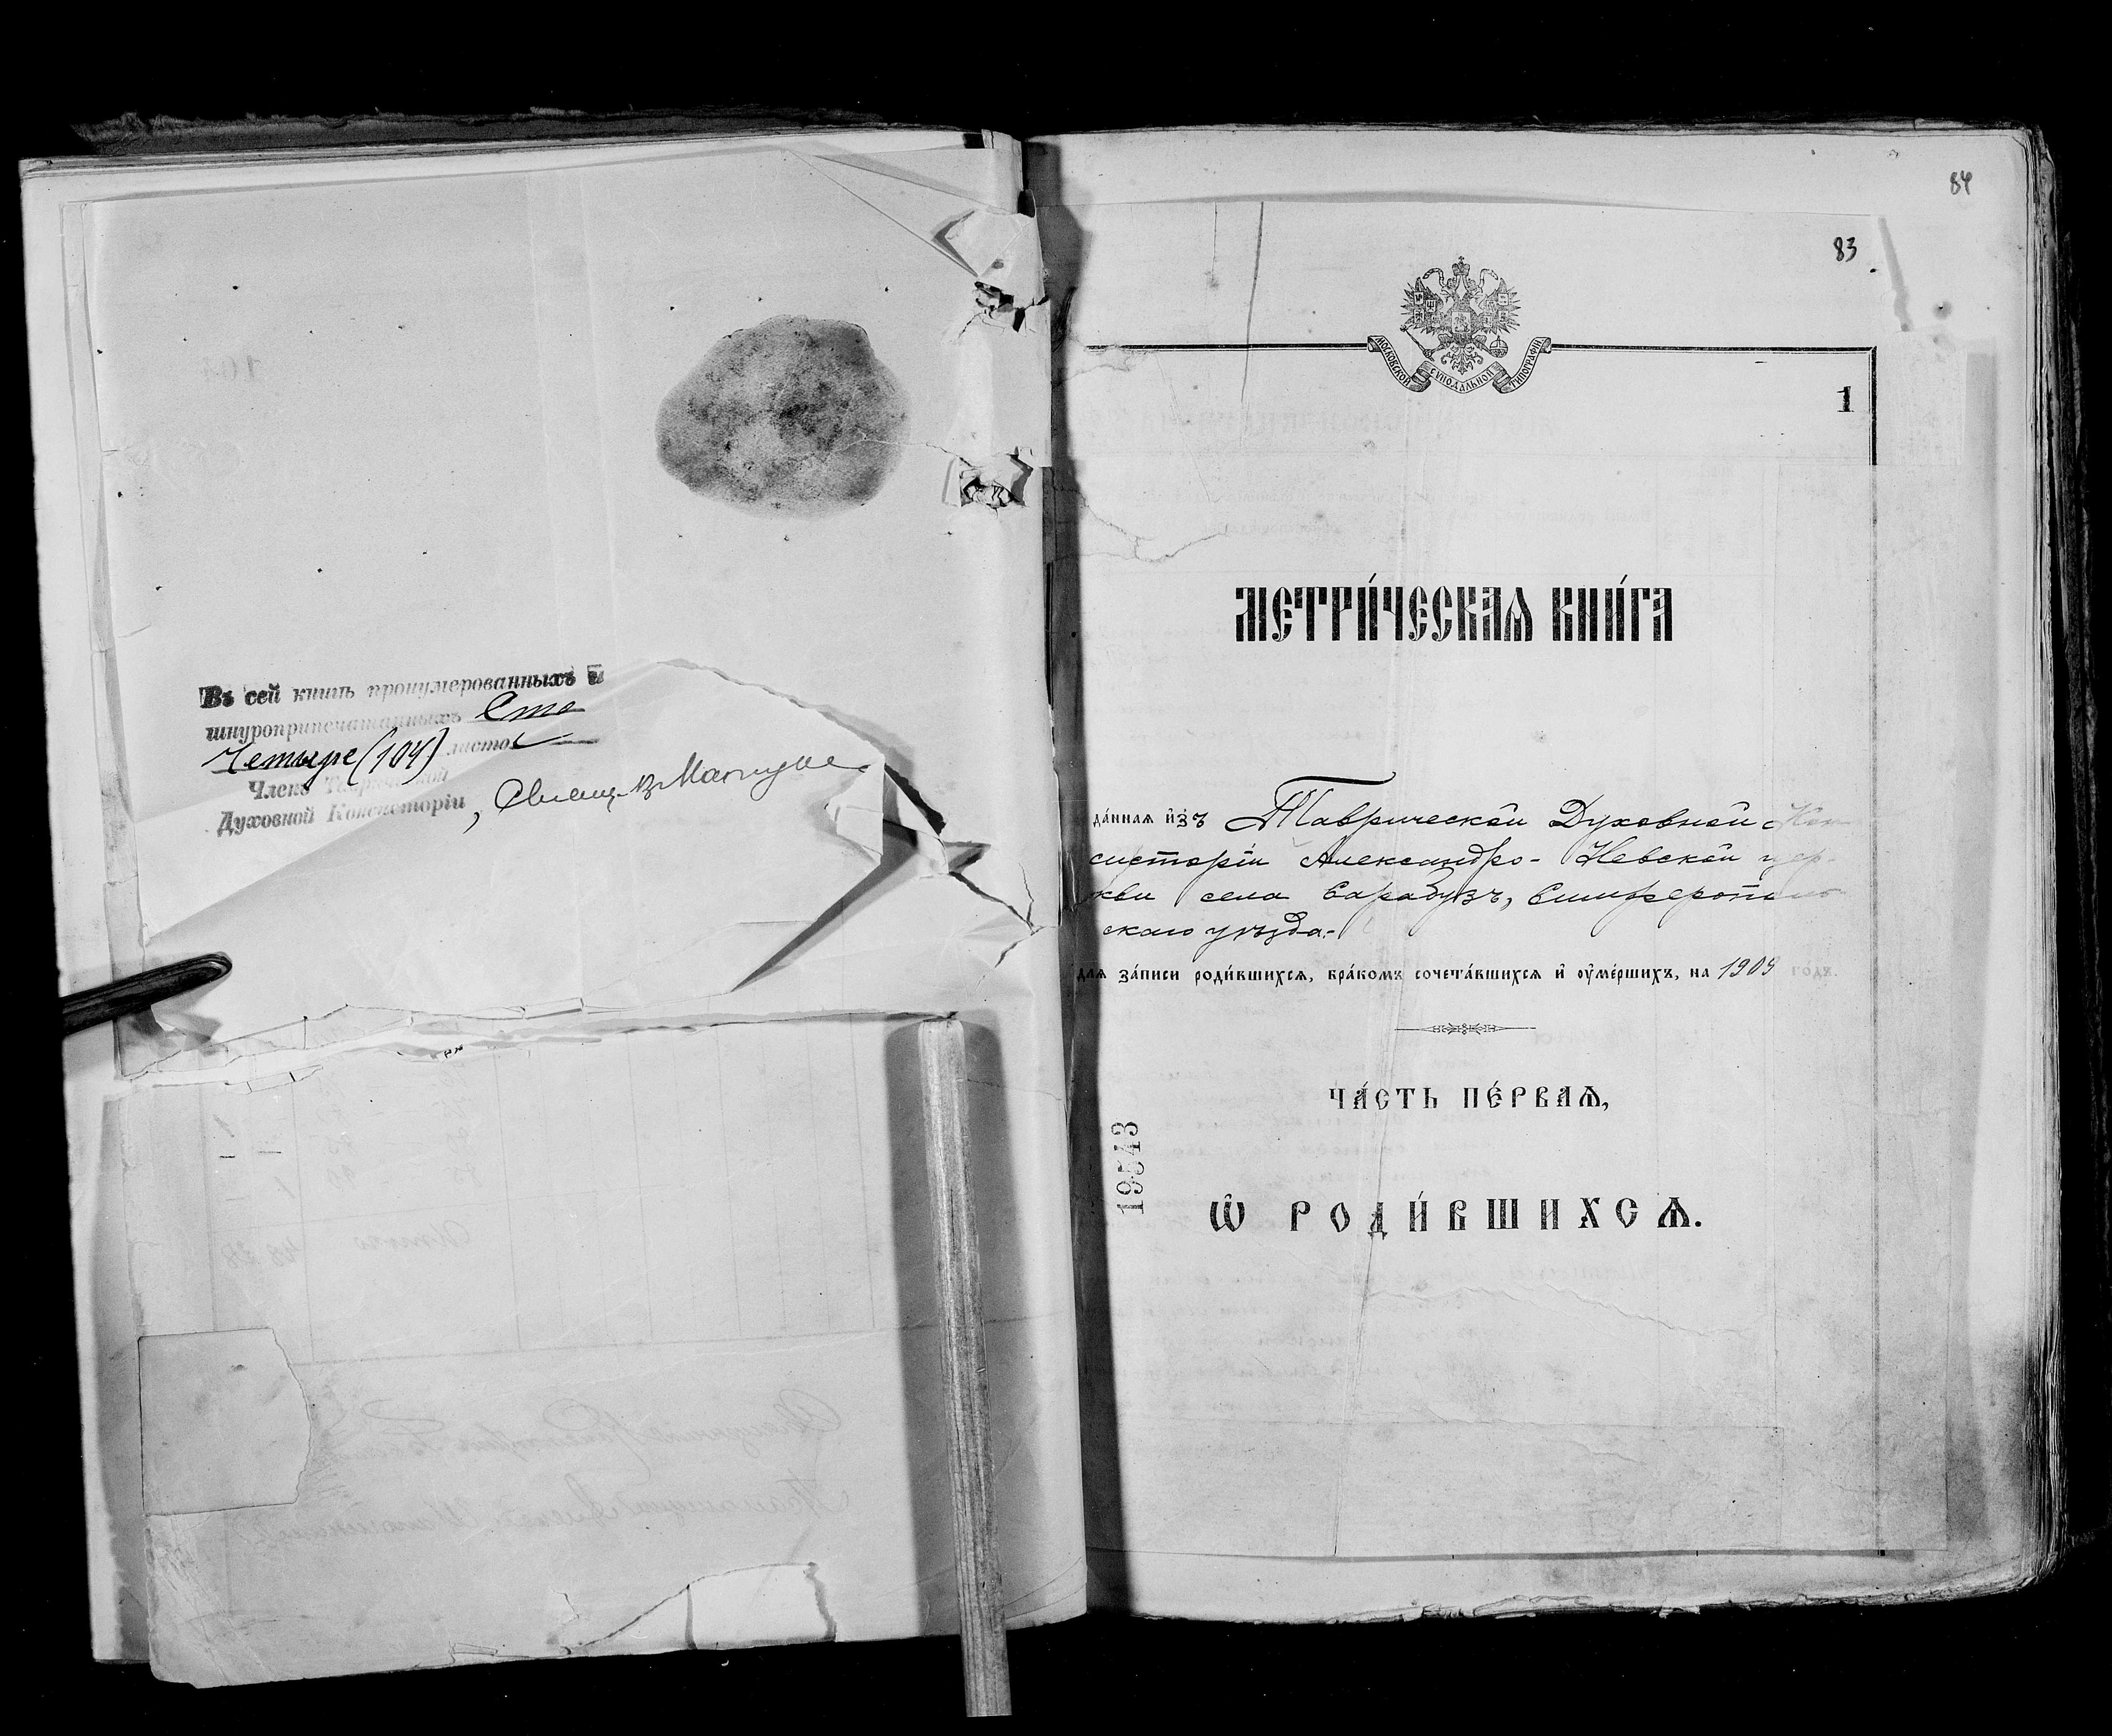 Въ сей книгѣ пронумерованныхъ и
шнуроприпечатанныхъ Сто
Четыре (104) листов
Членъ Таврической
Духовной Консисторіи, Свящ. В.
84
83
МОСКОВСКОЙ СУНОДАЛЬНОЙ ТИПОГРАФІИ
1
МЕТРИ́ЧЕСКАѦ КНИ́ГА
да́ннаѧ и҆зъ Таврической Духовной Кон
систоріи Александро-Невской цер-
кви села Сарабузъ, Симферополь
скаго уѣзда.-
длѧ за́писи роди́вшихсѧ, бра́комъ сочета́вшихсѧ и҆ ᲂу҆ме́ршихъ, на 1909 го́дъ.
ЧА́СТЬ ПЕ́РВАѦ,
19543
Ѽ РОДИ́ВШИХСѦ.